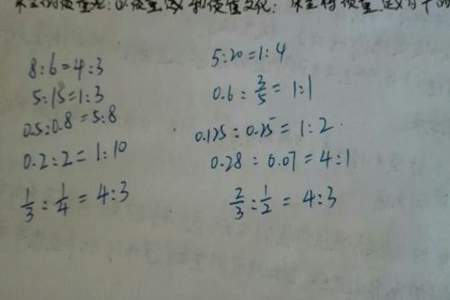 8:6=4:3
5:15=1:3
0.5:0.8=5:8
0.2:2=1:10
1/3:1/4=4:3
5:20=1:4
0.6:3/5=1:1
0.125:0.25=1:2
0.28:0.07=4:1
2/3:1/2=4:3